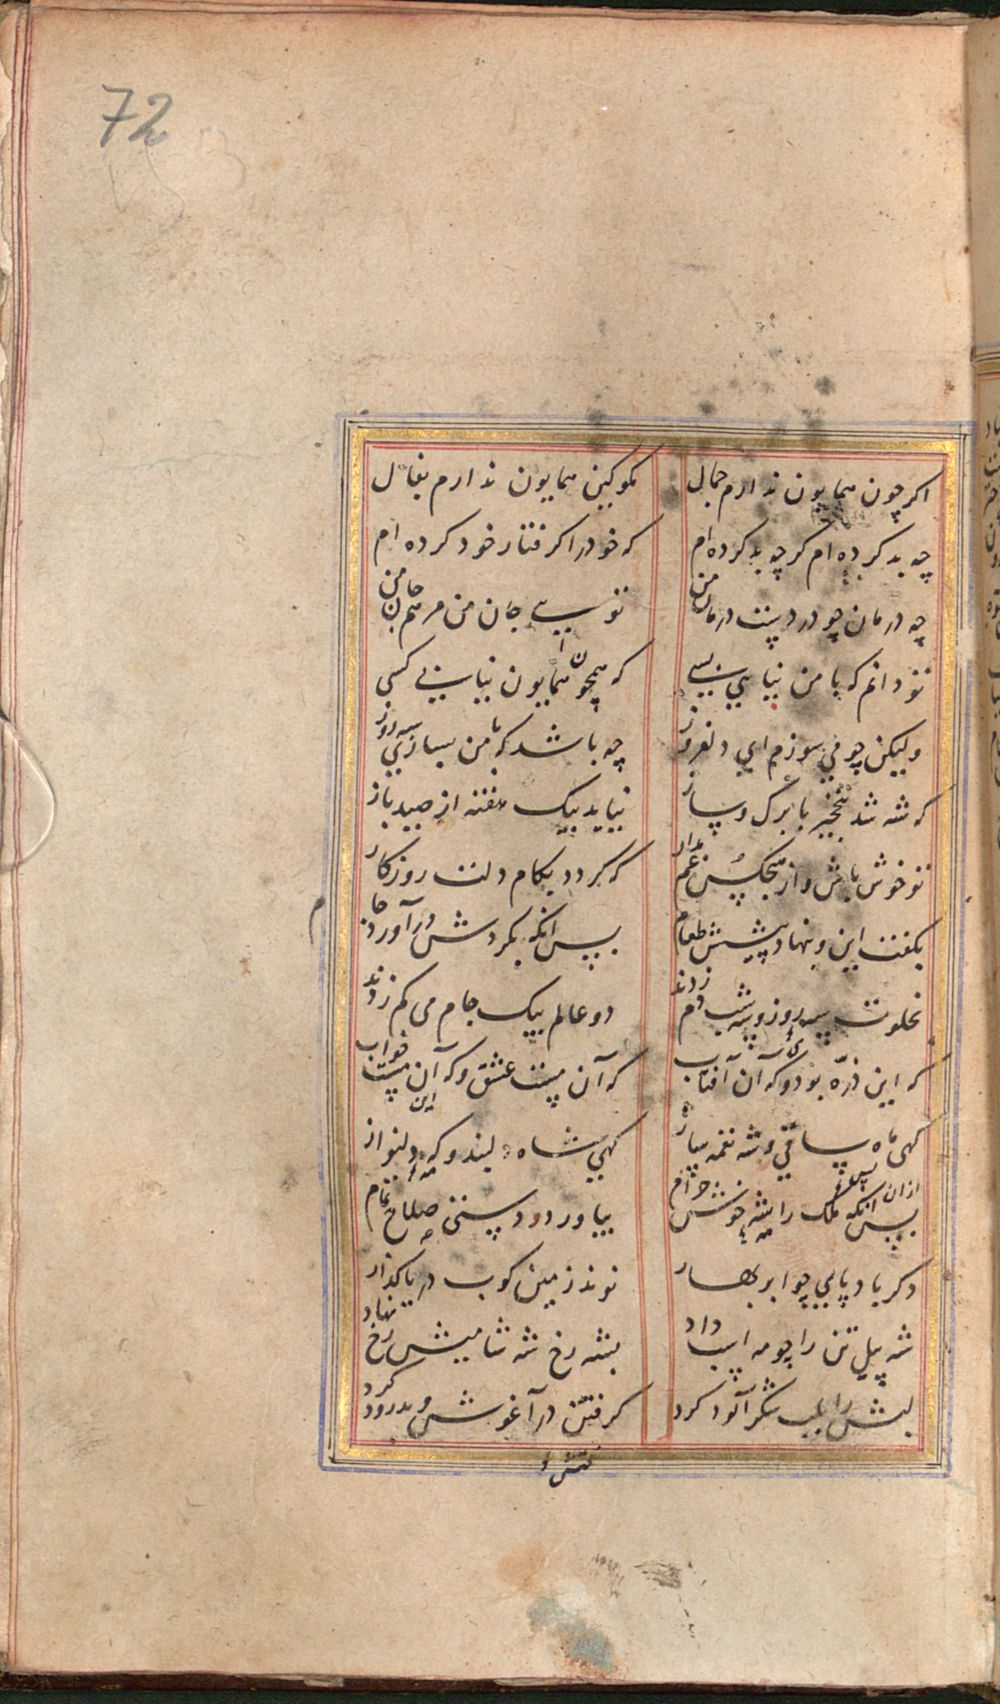 72
اکر چون همایون ندارم جمالی مکو کین همایون ندارم بفال
چه بد کرده ام کر چه بد کرده ام که خود را کرفتار خود کرده ام
چه درمان چو دردیست درمان من تویی جان من مرهم جان من
تو دانم که با من نیایی بسی که همچون همایون نیابی کسی
ولیکن چو می سوزم ای دلفروز چه باشد که با من بسازی سه روز
که شه شد بنخجیر با برک وساز نیاید بیک هفته از صید باز
تو خوش باش واز هیچکس غم مدار که کردد بکام دلت روزکار
بکفت این وبنهاد پیشش طعام پس آنکه بکردش درآورد جام
بخلوت سه روز وسه شب دم زدند دو عالم بیک جام می کم زدند
که این ذره بود وکه آن آفتاب که آن مست عشق وکه این مست خواب
کهی ماه ساقی وشه نغمه ساز کهی شاه دلبند وکه دلنواز
پس آنکه ملک را شه خوش خرام بیاورد دستی صلاح تمام
دکر باد پایی چو ابر بهار نوند زمین کوب دریا کذار
شه پیل تن را چو مه اسب داد بشه رخ شه شامیش رخ نهاد
لبش را بلب شکر آلود کرد کرفتش در آغوش وبدرود کرد